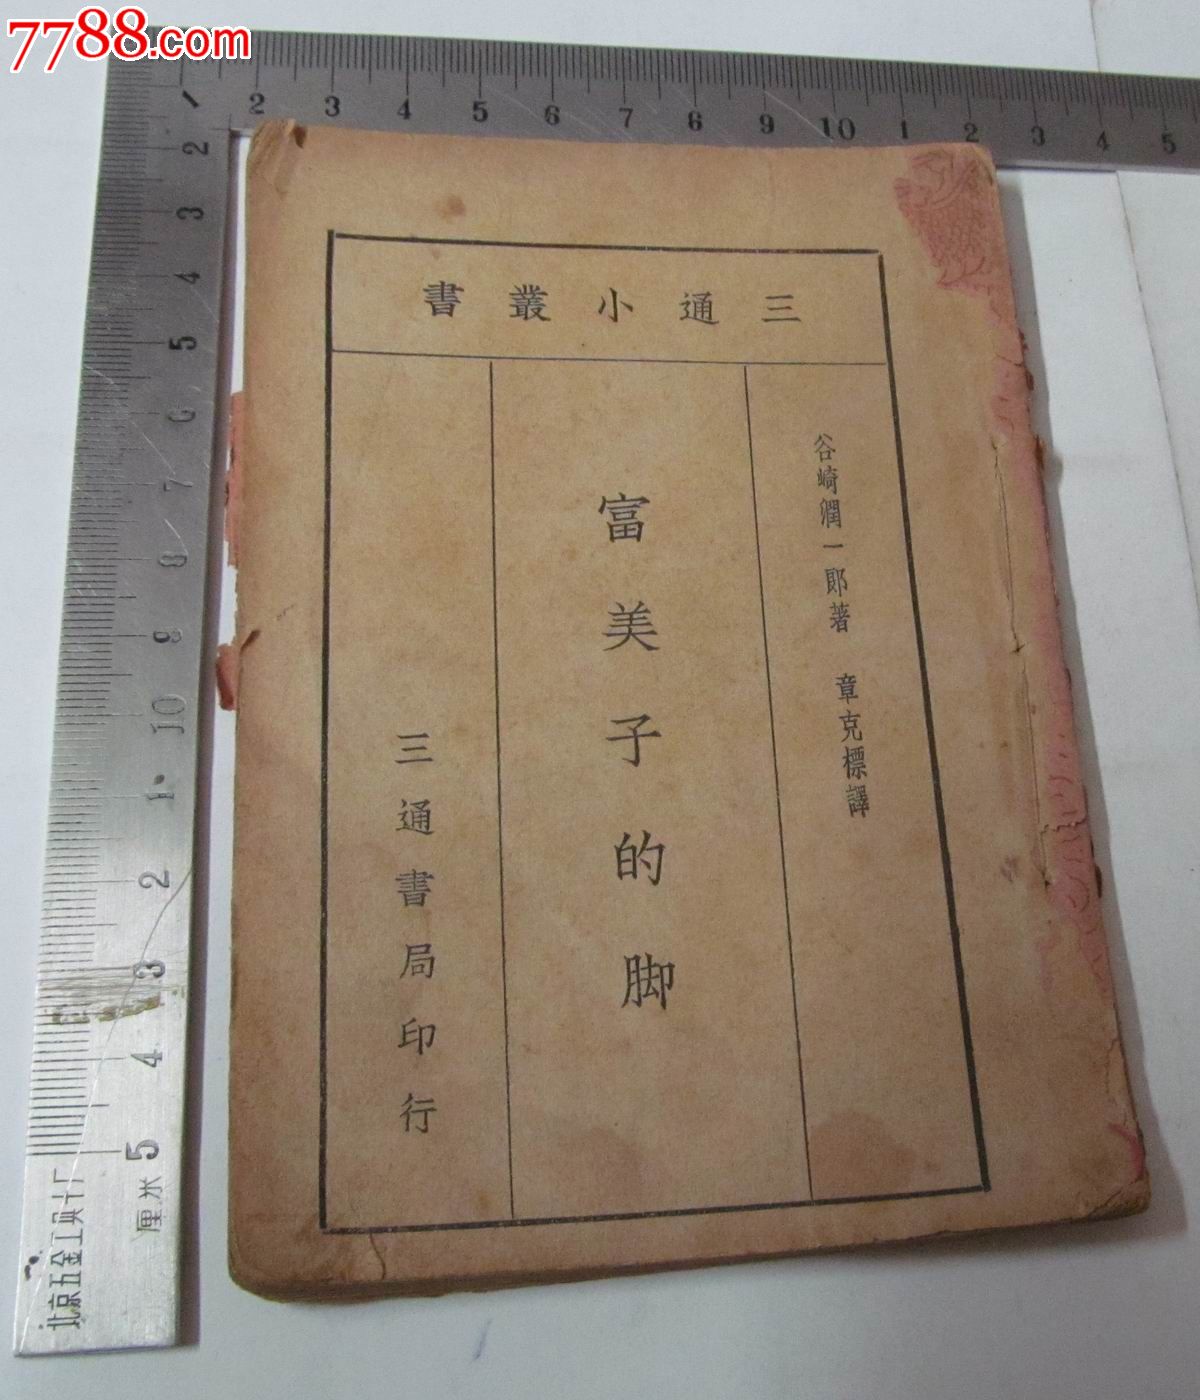 7788.com
1 2 3 4 5 6 7 8 9 10 1 2 3 4 5
2
3
4
5
6
7
8
9
10
1
2
3
4
5
厘米
北京五金工具十厂
三通小叢書
谷崎潤一郎著　章克標譯
富美子的脚
三通書局印行